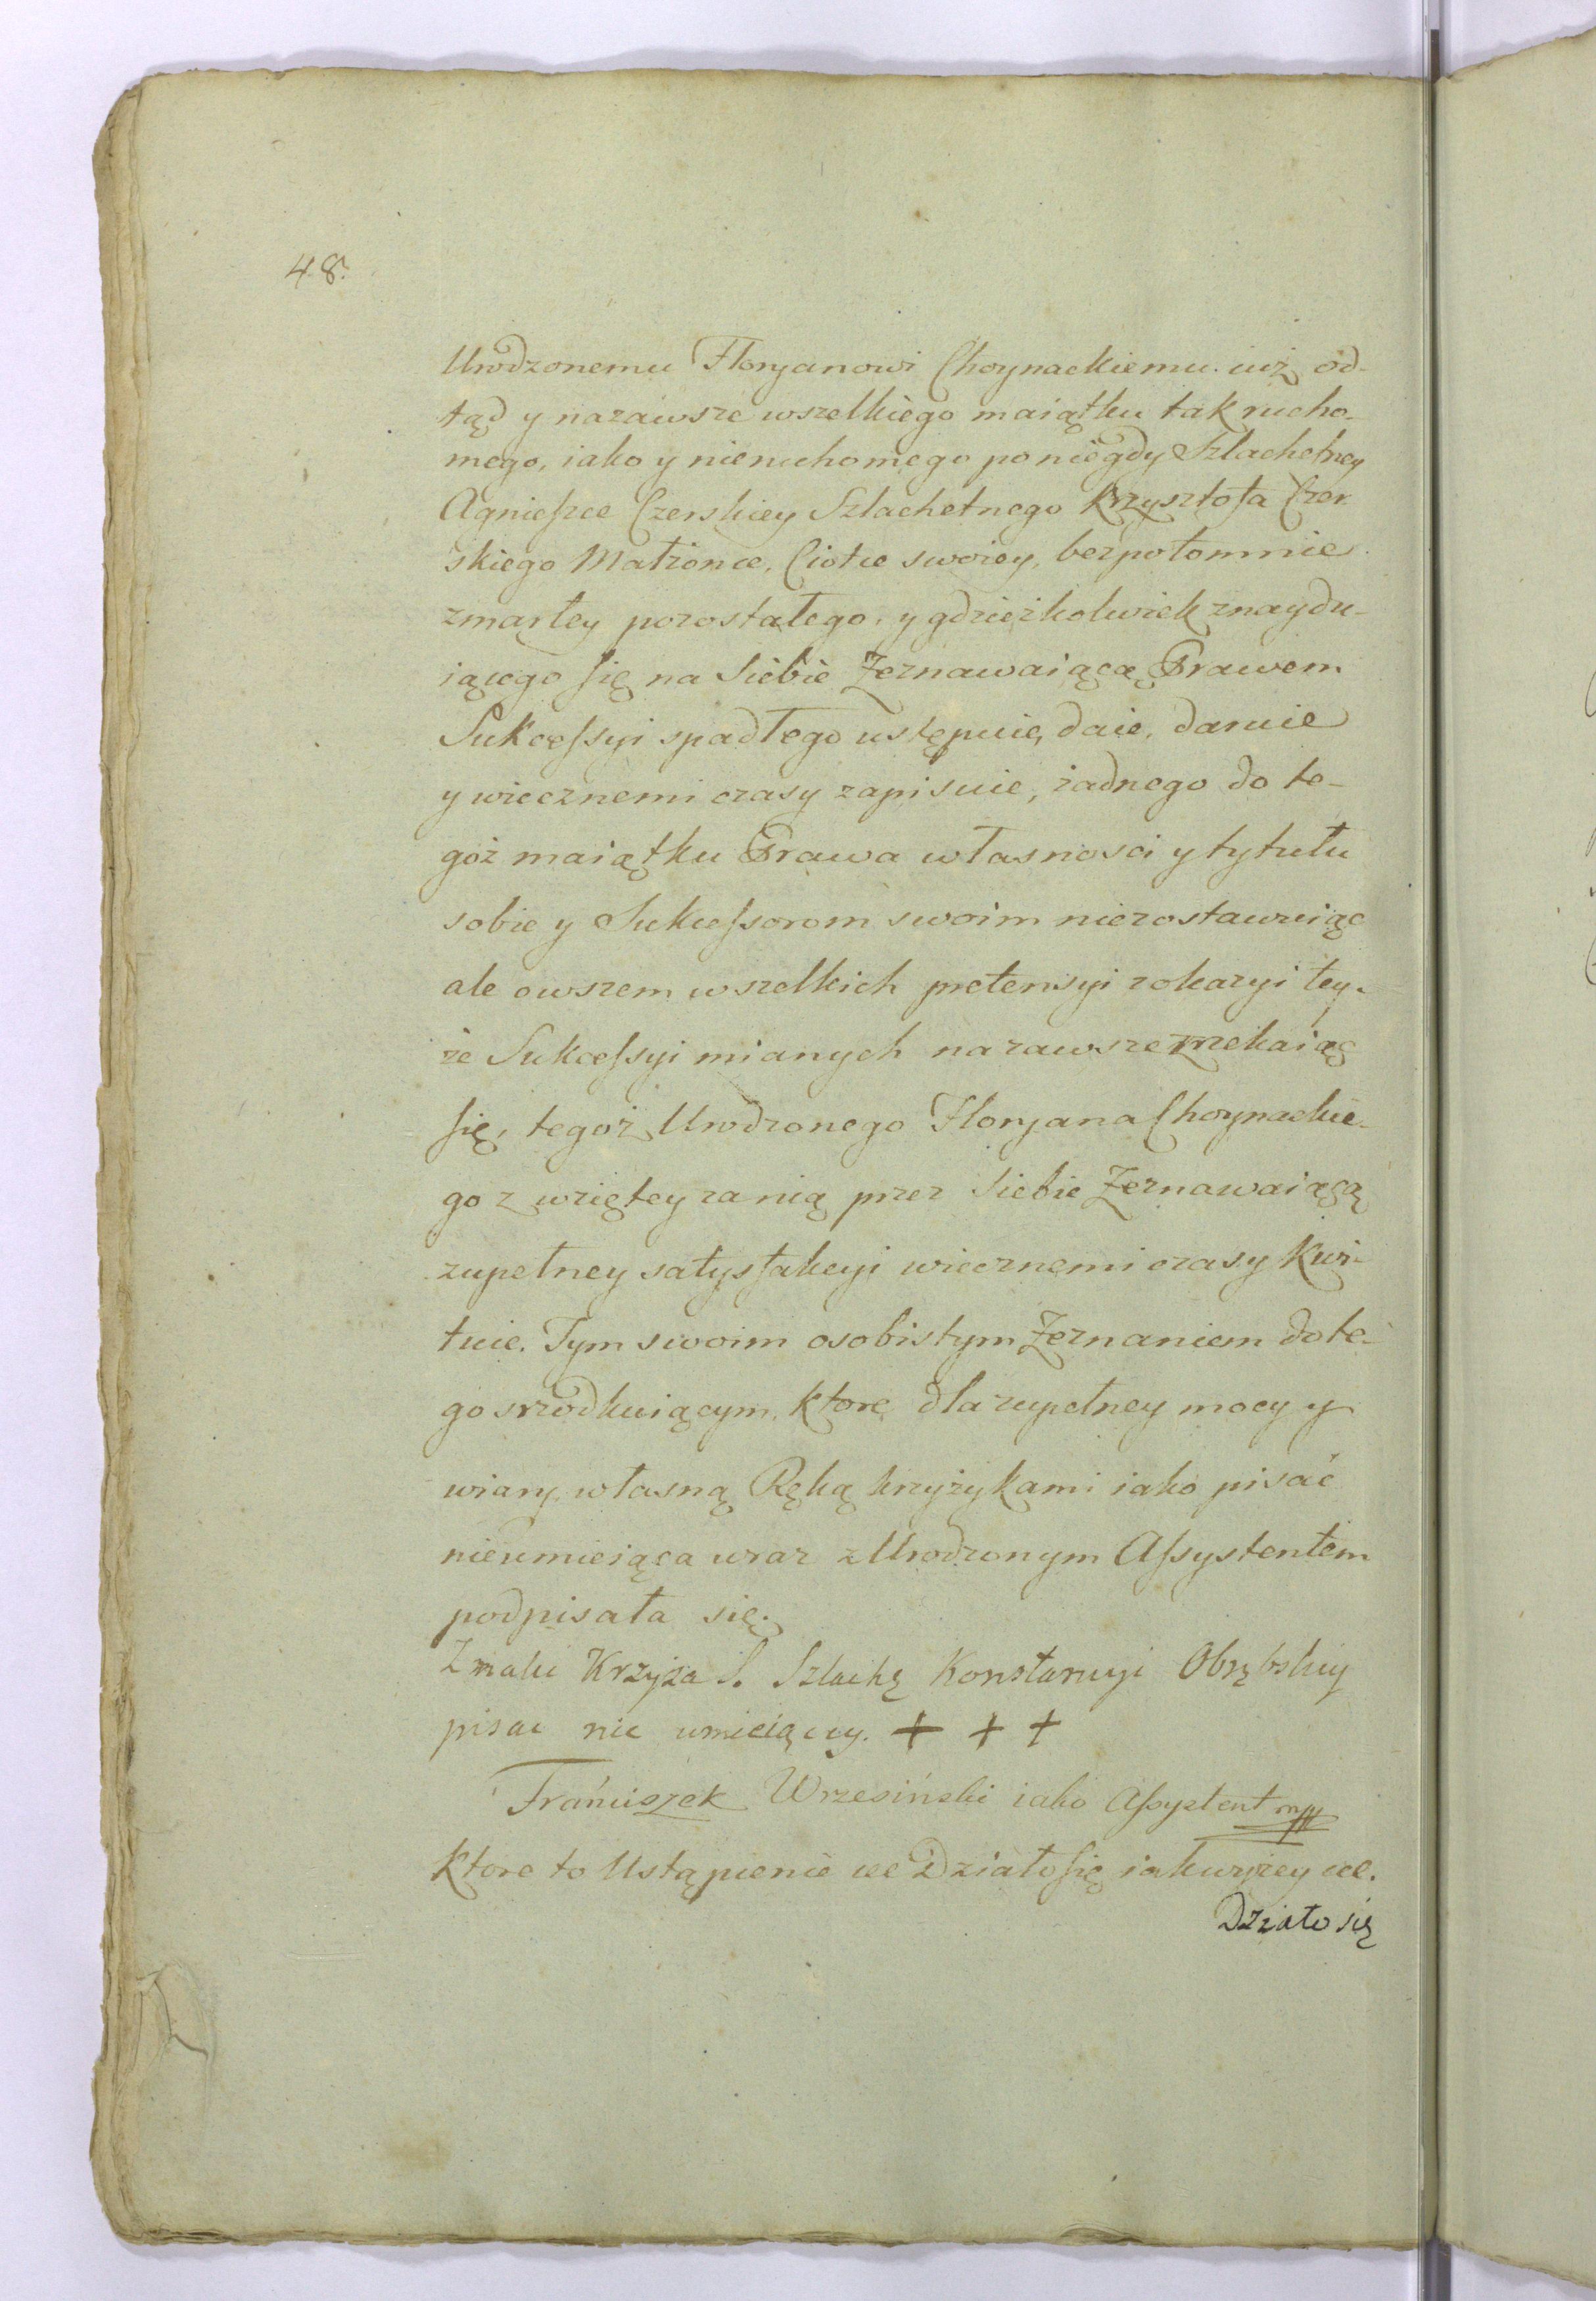 48.
Urodzonemu Floryanowi Choynackiemu iuż od-
tąd y nazawsze wszelkiego maiątku tak rucho-
mego, iako y nieruchomego po niegdy Szlachetney
Agnieſzce Czerskiey Szlachetnego Krzysztofa Czer-
skiego Małżonce, Ciotce swoiey, bezpotomnie
zmarłey pozostałego, y gdzieżkolwiek znaydu-
iącego ſię na Siebie Zeznawaiącą Prawem
Sukceſsyi spadłego ustępuie, daie, daruie
y wiecznemi czasy zapisuie, żadnego do te-
goż maiątku Prawa własnosci y tytułu
sobie y Sukceſsorom swoim niezostawuiąc
ale owszem wszelkich pretensyi zokazyi tey-
że Sukceſsyi mianych nazawsze zrzekaiąc
ſię, tegoż Urodzonego Floryana Choynackie-
go z wziętey za nią przez Siebie Zeznawaiącą
zupełney satysfakcyi wiecznemi czasy kwi-
tuie. Tym swoim osobistym Zeznaniem do te-
go srzodkuiącym, ktore dla zupełney mocy y
wiary własną Ręką krzyżykami iako pisać
nieumieiąca wraz z Urodzonym Aſsystentem
podpisała się.
Znaki Krzyża S. Szlachę Konstancyi Obrębskiy
pisac nie umieiącey. + + +
Franciszek Wrzesiński iako Aſsystent mpp
Ktore to Ustąpienie etc Działo ſię iakwyżey etc.
Działo się